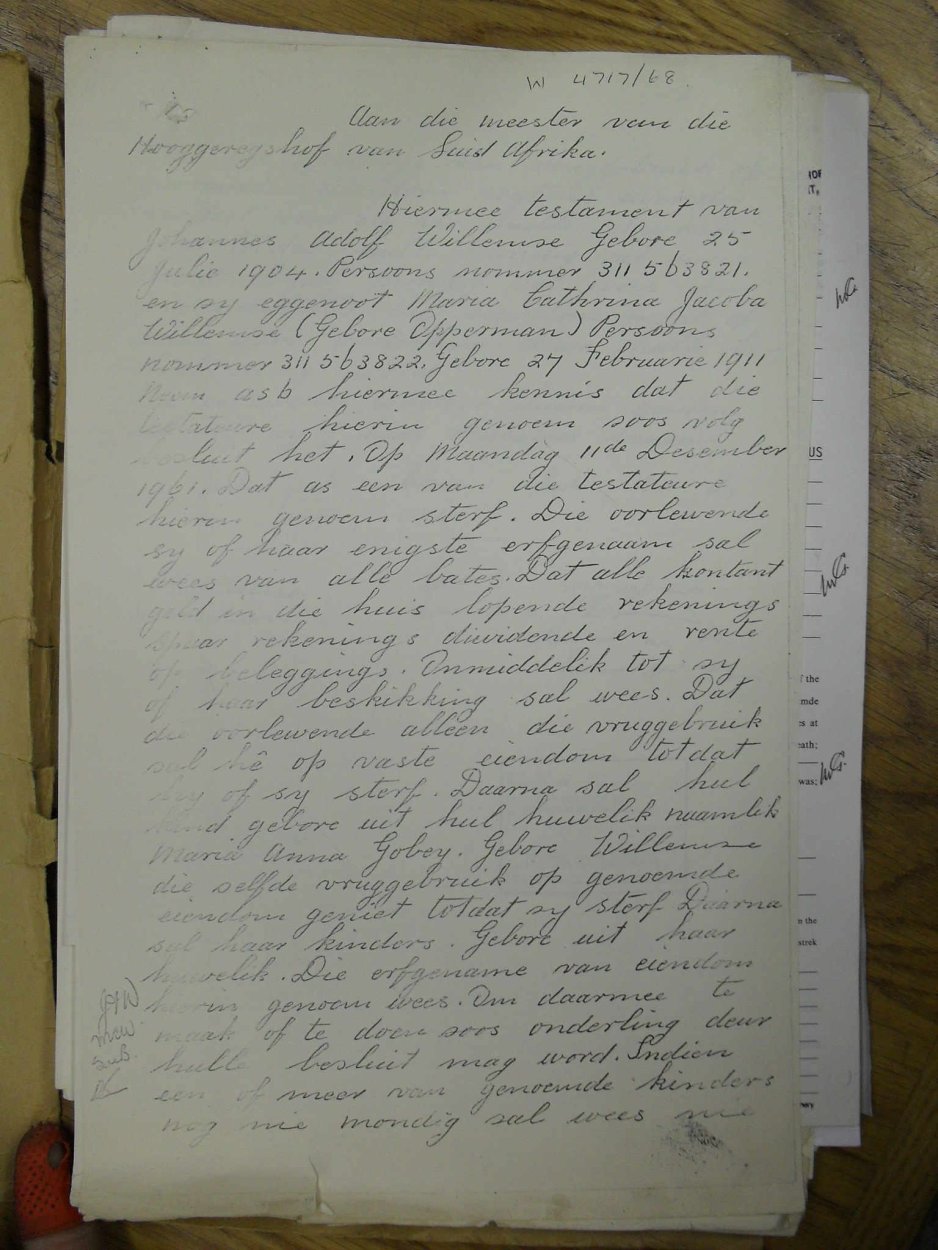 W 4717/68.
Aan die meester van die
Hooggeregshof van Suid Afrika.
Hiermee testament van
Johannes Adolf Willemse Gebore 25
Julie 1904. Persoons nommer 311563821.
en sy eggenoot Maria Cathrina Jacoba
Willemse (Gebore Opperman) Persoons
nommer 311563822. Gebore 27 Februarie 1911
Neem asb hiermee kennis dat die
testateure hierin genoem soos volg
besluit het. Op Maandag 11de Desember
1961. Dat as een van die testateure
hierin genoem sterf. Die oorlewende
sy of haar enigste erfgenaam sal
wees van alle bates. Dat alle kontant
geld in die huis lopende rekenings
spaar rekenings diwidende en rente
op beleggings. Onmiddelik tot sy
of haar beskikking sal wees. Dat
die oorlewende alleen die vruggebruik
sal hê op vaste eiendom totdat
hy of sy sterf. Daarna sal hul
kind gebore uit hul huwelik naamlik
Maria Anna Gobey. Gebore Willemse
die selfde vruggebruik op genoemde
eiendom geniet totdat sy sterf Daarna
sal haar kinders. Gebore uit haar
huwelik. Die erfgename van eiendom
hierin genoem wees. Om daarmee te
maak of te doen soos onderling deur
hulle besluit mag word. Indien
een of meer van genoemde kinders
nog nie mondig sal wees nie
JAW
US
f the
mde
es at
eath;
was;
n the
strek